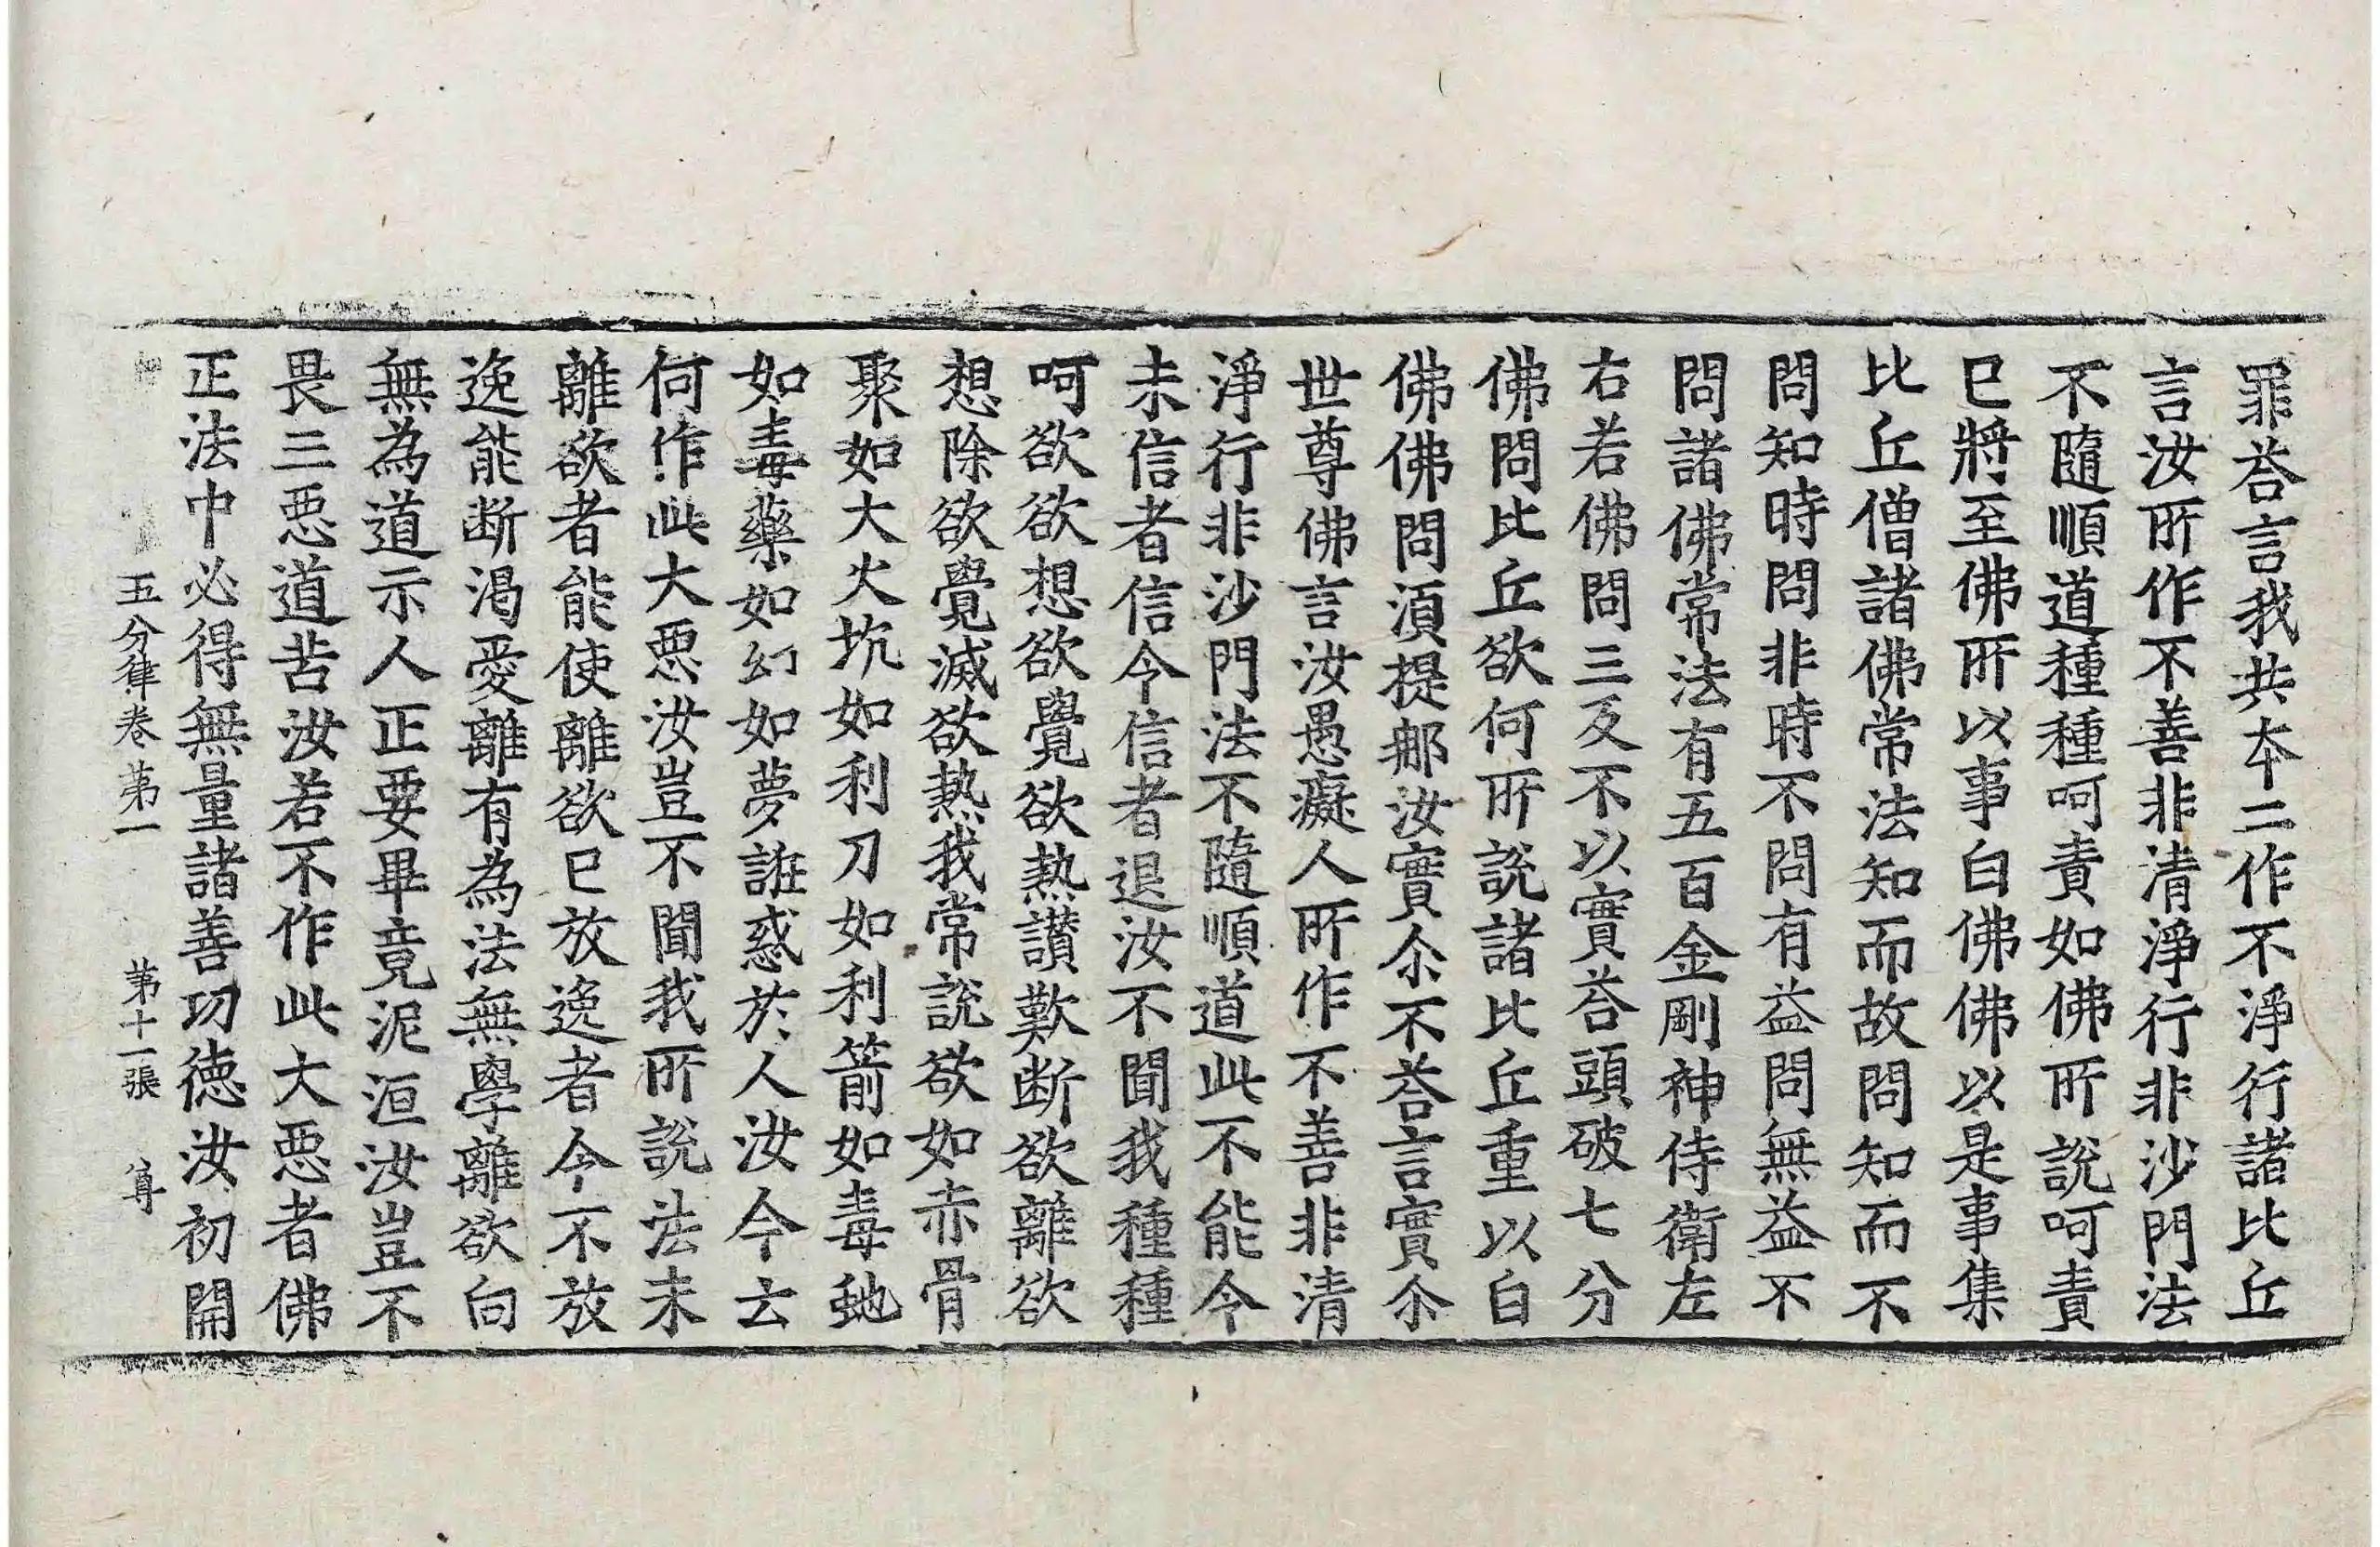 罪荅言我共夲二作不淨行諸比丘
言汝所作不善非清淨行非沙門法
不隨順道種種呵責如佛所說呵責
已將至佛所以事白佛佛以是事集
比丘僧諸佛常法知而故問知而不
問知時問非時不問有益問無益不
問諸佛常法有五百金剛神侍衛左
右若佛問三反不以實荅頭破七分
佛問比丘欲何所說諸比丘重以白
佛佛問湏提那汝實尒不荅言實尒
世尊佛言汝愚癡人所作不善非清
淨行非沙門法不隨順道此不能令
未信者信令信者退汝不聞我種種
呵欲欲想欲覺欲熱讃歎断欲離欲
想除欲覺滅欲熱我常說欲如赤骨
聚如大火坑如利刀如利箭如毒虵
如毒藥如幻如夢誑惑於人汝今云
何作此大惡汝豈不聞我所說法未
離欲者能使離欲已放逸者令不放
逸能断渴愛離有為法無學離欲向
無為道示人正要畢竟泥洹汝豈不
畏三惡道苦汝若不作此大惡者佛
正法中必得無量諸善功徳汝初開
五分律卷第一　第十一張　尊